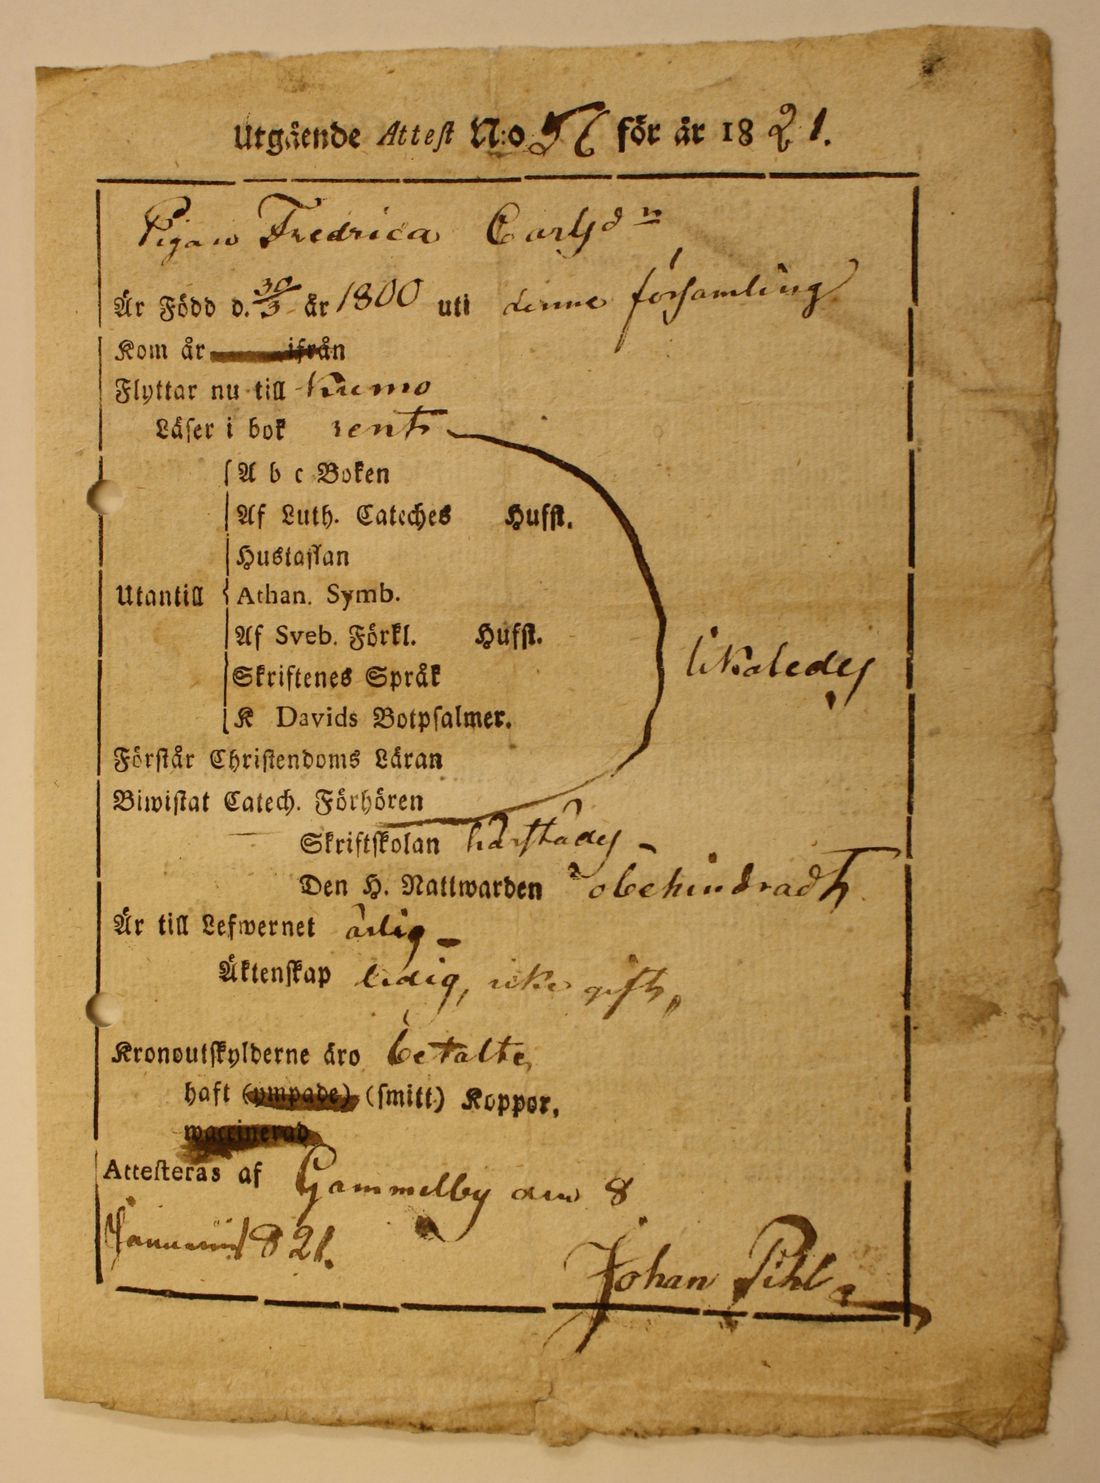 Utgående Attest N:o 56 för år 1821.
Pigan Fredrica Carlsdr
Är Född d. 30/3 år 1800 uti denne församling
Kom år ifrån
Flyttar nu till Kumo
Läser i bok rent
A b c Boken
Af Luth. Cateches Hufst.
Hustaflan
Utantill Athan. Symb.
Af Sveb. Förkl. Hufst.
likaledes
Skriftenes Språk
K Davids Botpsalmer.
Förstår Christendoms Läran
Biwistat Catech. Förhören
Skriftskolan härstädes
Den H. Nattwarden obehindradt
Är till Lefwernet ärlig
Äktenskap ledig, icke gift,
Kronoutskylderne äro betalte
haft (ympade) (smitt) Koppor.
waccinerad
Attesteras af Gammelby den 8
Januarii 1821.
Johan Pihl